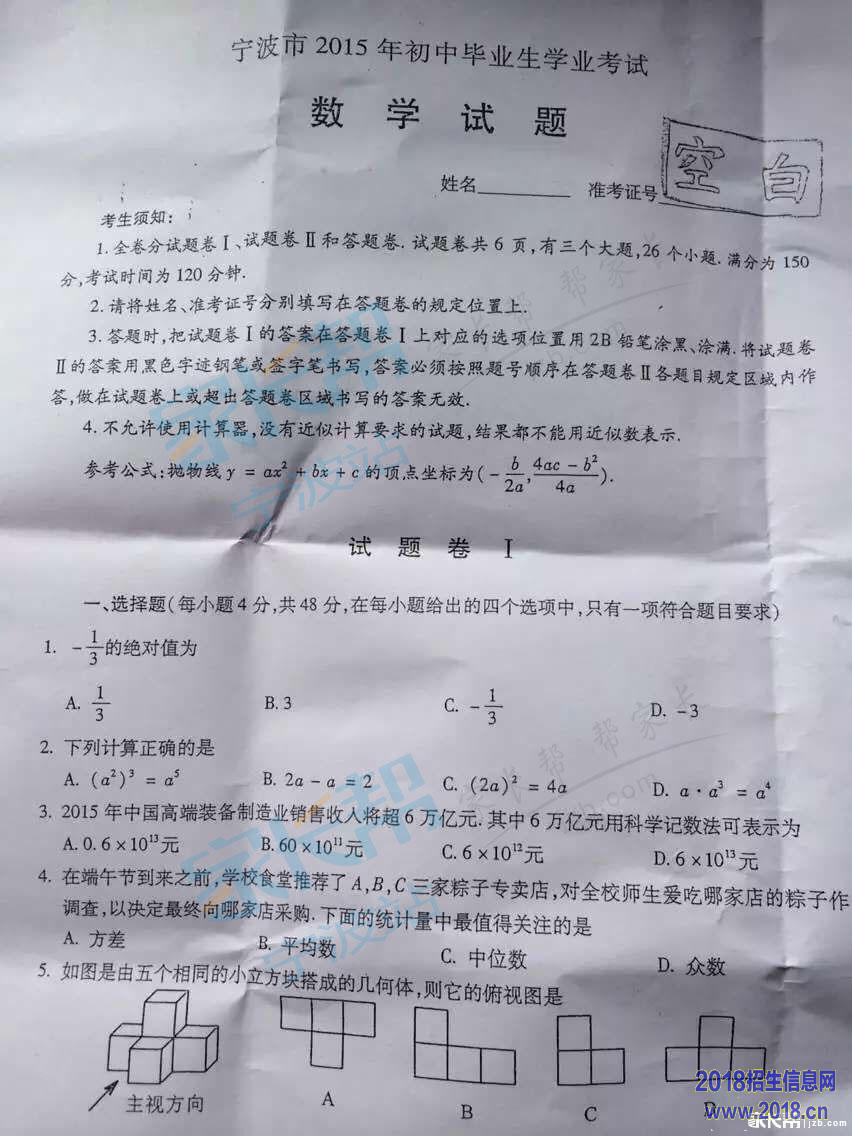 宁波市 2015 年初中毕业生学业考试
数 学 试 题
空 白
姓名________ 准考证号
考生须知:
1. 全卷分试题卷Ⅰ、试题卷Ⅱ和答题卷. 试题卷共 6 页,有三个大题,26 个小题. 满分为 150
分,考试时间为 120 分钟.
2. 请将姓名、准考证号分别填写在答题卷的规定位置上.
3. 答题时,把试题卷Ⅰ的答案在答题卷Ⅰ上对应的选项位置用 2B 铅笔涂黑、涂满. 将试题卷
Ⅱ的答案用黑色字迹钢笔或签字笔书写,答案必须按照题号顺序在答题卷Ⅱ各题目规定区域内作
答,做在试题卷上或超出答题卷区域书写的答案无效.
4. 不允许使用计算器,没有近似计算要求的试题,结果都不能用近似数表示.
参考公式:抛物线 y = ax² + bx + c 的顶点坐标为(-b/2a, (4ac - b²)/4a).
试 题 卷 Ⅰ
一、选择题(每小题 4 分,共 48 分,在每小题给出的四个选项中,只有一项符合题目要求)
1. -1/3 的绝对值为
A. 1/3 B. 3 C. -1/3 D. -3
2. 下列计算正确的是
A. (a²)³ = a⁵ B. 2a - a = 2 C. (2a)² = 4a D. a·a³ = a⁴
3. 2015 年中国高端装备制造业销售收入将超 6 万亿元. 其中 6 万亿元用科学记数法可表示为
A. 0.6×10¹³元 B. 60×10¹¹元 C. 6×10¹²元 D. 6×10¹³元
4. 在端午节到来之前,学校食堂推荐了 A,B,C 三家粽子专卖店,对全校师生爱吃哪家店的粽子作
调查,以决定最终向哪家店采购. 下面的统计量中最值得关注的是
A. 方差 B. 平均数 C. 中位数 D. 众数
5. 如图是由五个相同的小立方块搭成的几何体,则它的俯视图是
主视方向 A B C D
家长帮
宁波站
家长帮
宁波站
2018招生信息网
www.2018.cn
家长帮 jzb.com